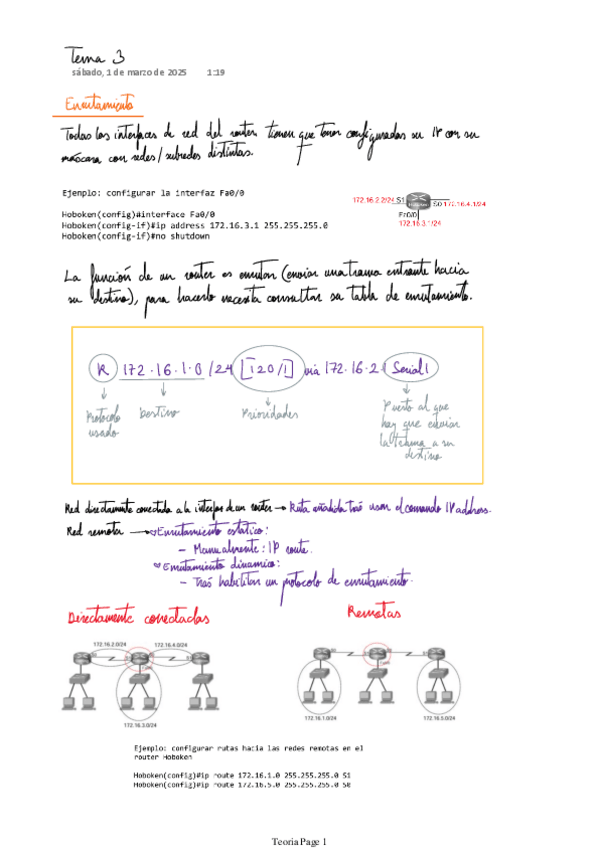 Tema 3
sábado, 1 de marzo de 2025 1:19
Enrutamiento
Todas las interfaces de red del router tienen que tener configuradas su IP con su
máscara con redes/subredes distintas.
Ejemplo: configurar la interfaz Fa0/0
Hoboken(config)#interface Fa0/0
Hoboken(config-if)#ip address 172.16.3.1 255.255.255.0
Hoboken(config-if)#no shutdown
172.16.2.2/24 S1
S0 172.16.4.1/24
Fa0/0
172.16.3.1/24
La función de un router es enrutar (enviar una trama entrante hacia
su destino), para hacerlo necesita consultar su tabla de enrutamiento.
R 172.16.1.0/24 [120/1] via 172.16.2.1 Serial1
Protocolo
usado
Destino
Prioridades
Puerto al que
hay que enviar
la trama a su
destino
Red directamente conectada a la interfaz de un router → Ruta añadida tras usar el comando IP address.
Red remota → Enrutamiento estático:
- Manualmente: IP route.
Enrutamiento dinámico:
- Tras habilitar un protocolo de enrutamiento.
Directamente conectadas
Remotas
172.16.2.0/24
172.16.4.0/24
172.16.3.0/24
172.16.1.0/24
172.16.5.0/24
Ejemplo: configurar rutas hacia las redes remotas en el
router Hoboken
Hoboken(config)#ip route 172.16.1.0 255.255.255.0 S1
Hoboken(config)#ip route 172.16.5.0 255.255.255.0 S0
Teoria Page 1